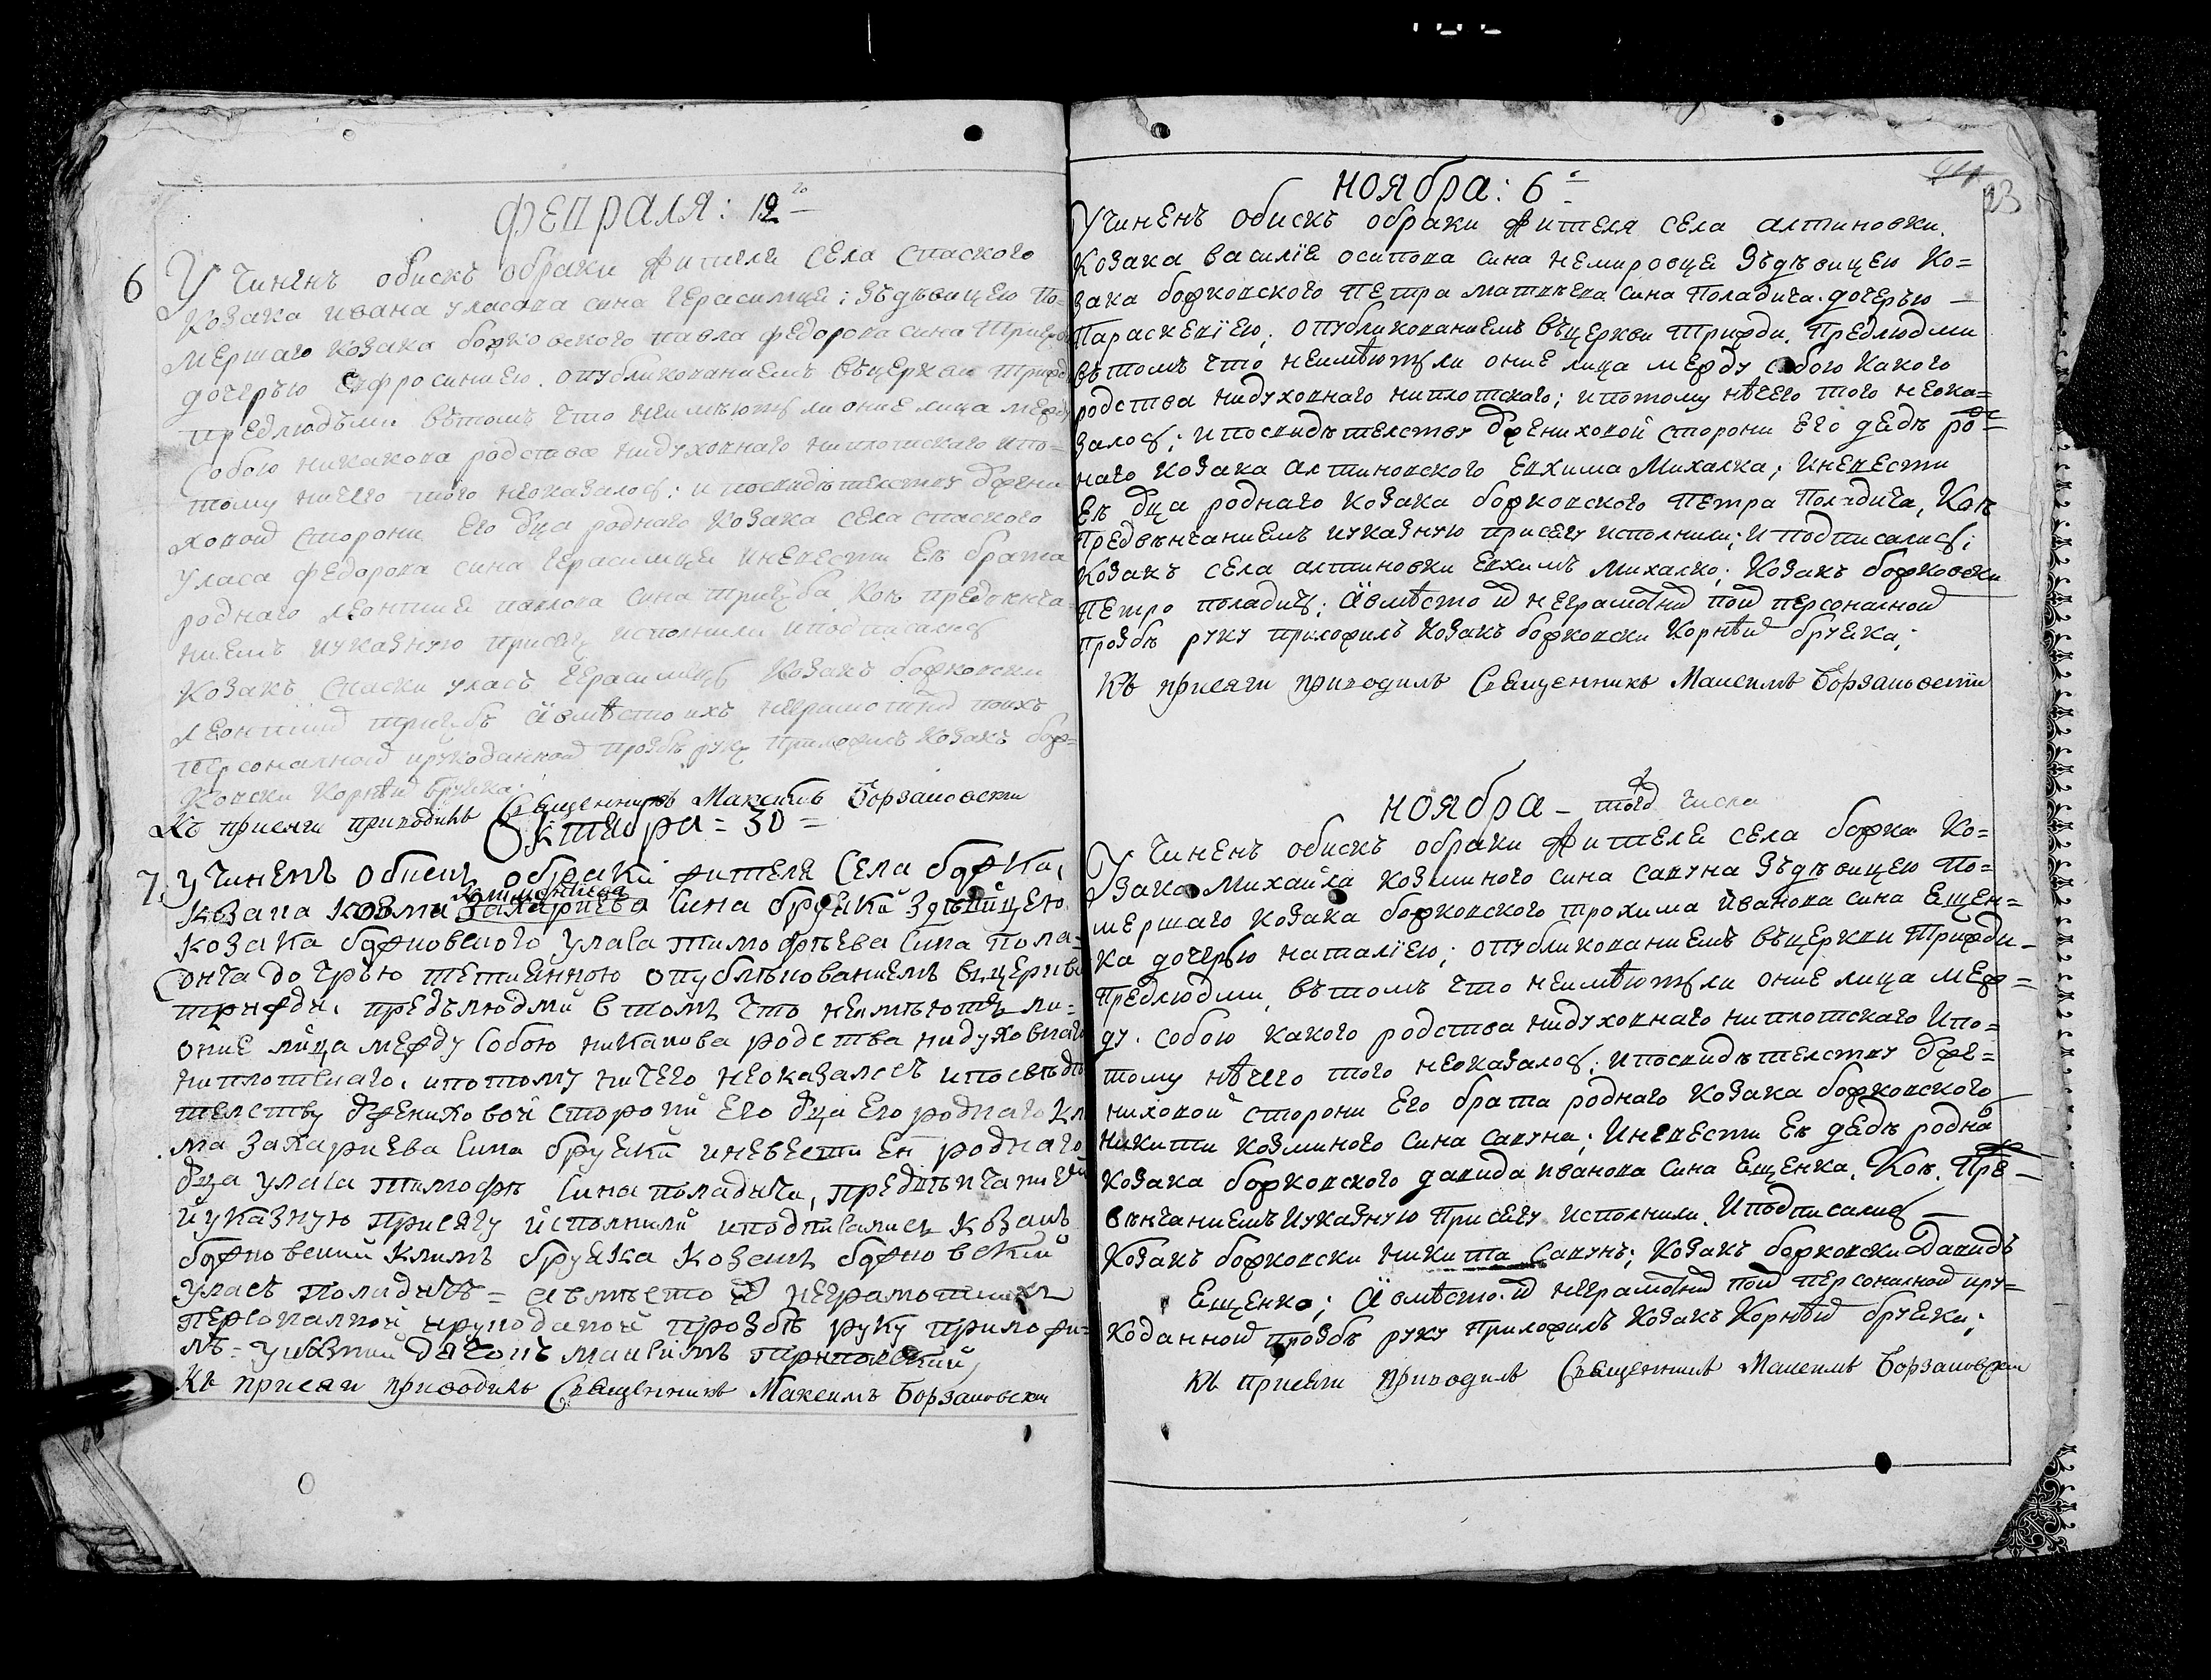 фепраля: 12 го
6 Учиненъ обискъ обраки жителя села спаского
козака ивана уласова сина герасимце; зъдѣвицею по-
мершаго козака божковского павла федорова сина тригуба
дочерѣю евфросиниею. опубликованиемъ въцеркви трижди
предлюдьми вътомъ что неимѣютъ ли оние лица межъду
собою никакова родства нидуховнаго ниплотскаго ипо-
тому ничего того неоказалось; и посвидѣтелству ѿжени
ховой сторони его ѿца роднаго козака села спаского
уласа федорова сина герасимце иневести еѣ брата
роднаго леонтие павлова сина тригуба, кои предвенча-
ниемъ иуказную присегу исполнили иподписались
козакъ спаски уласъ герасимецъ козакъ божковски
леонтий тригубъ авмѣсто ихъ неграмотнихъ поихъ
персоналной ирукоданной прозбѣ руку приложилъ козакъ бож=
ковски корнѣй бруяка.
Къ присяги приводилъ Священникъ Максимъ Борзаковски
Октября = 30 =
7. учиненъ обискъ обраки жителя села божка,
козака козми климентиева захариева сина бруяки здѣвицею
козака божковского уласа тимофѣева сина пола-
дича дочерью тетиянною опубликованиемъ вцеркви
трижди, предълюдми втомъ что неимѣютъ ли-
оние лица между собою никакова родства нидуховнаго
ниплотскаго, ипотому ничего неоказалось ипосвѣдѣ
телству ѿжениховой сторони его ѿца его роднаго кли
ма захариева сина бруяки иневести ея роднаго
ѿца уласа тимофѣ сина поладича, предвѣнчаниемъ
иуказную присягу исполнили иподписались козакъ
божковский климъ бруяка козакъ божковский
уласъ поладичъ = авмѣсто их неграмотних
персоналной ирукоданой прозбѣ руку приложи=
лъ = дячокъ максимъ
Къ присяги приводилъ Священникъ Максимъ Борзаковски
23
ноября: 6 го
Учиненъ обискъ обраки жителя села алтиновки.
козака василїе осипова сина немировце зъдѣвицею ко=
зака божковского петра матвѣева сина поладича дочерѣю —
параскевїею; опубликованиемъ въцеркви трижди. предлюдми
вътомъ что неимѣютъ ли оние лица между собою какого
родства нидуховнаго ниплотскаго; ипотому нѣчего того неока=
залось; ипосвидѣтелству ѿжениховой сторони его дядѣ ро=
наго козака алтиновского евхима Михалка; иневести
еѣ ѿца роднаго козака божковского петра поладича, кои
предвѣнчаниемъ иуказную присегу исполнили; и подписались;
козакъ села алтиновки евхимъ михалко; козакъ божковски
петро поладичъ; авмѣсто их неграмотних поих персоналной
прозбѣ руку приложилъ козакъ божковски корнѣй бруяка;
Къ присяги приводилъ Священникъ Максимъ Борзаковски
ноября — того ж числа
Учиненъ обискъ обраки жителе села божка ко=
зака Михайла козминого сина савуна зъдѣвицею по=
мершаго козака божковского трохима иванова сина ещен=
ка дочерѣю наталїею; опубликованиемъ въцеркви трижди —
предлюдми, вътомъ что неимѣютъ ли оние лица меж=
ду собою какого родства нидуховнаго ниплотскаго ипо=
тому нѣчего того неоказалось; ипосвидѣтелству ѿже=
ниховой сторони его брата роднаго козака божковского
никити козминого сина савуна; иневести еѣ дядѣ родна
козака божковского давида иванова сина ещенка, кои. пре=
вѣнчаниемъ иуказную присегу исполнили. Иподписались —
козакъ божковски никита савунъ; козакъ божковски давидъ
ещенко; авмѣсто их неграмотних поих персоналной иру=
коданной прозбѣ руку приложилъ козакъ корнѣй бруяка;
Къ присяги приводилъ Священникъ Максимъ Борзаковски